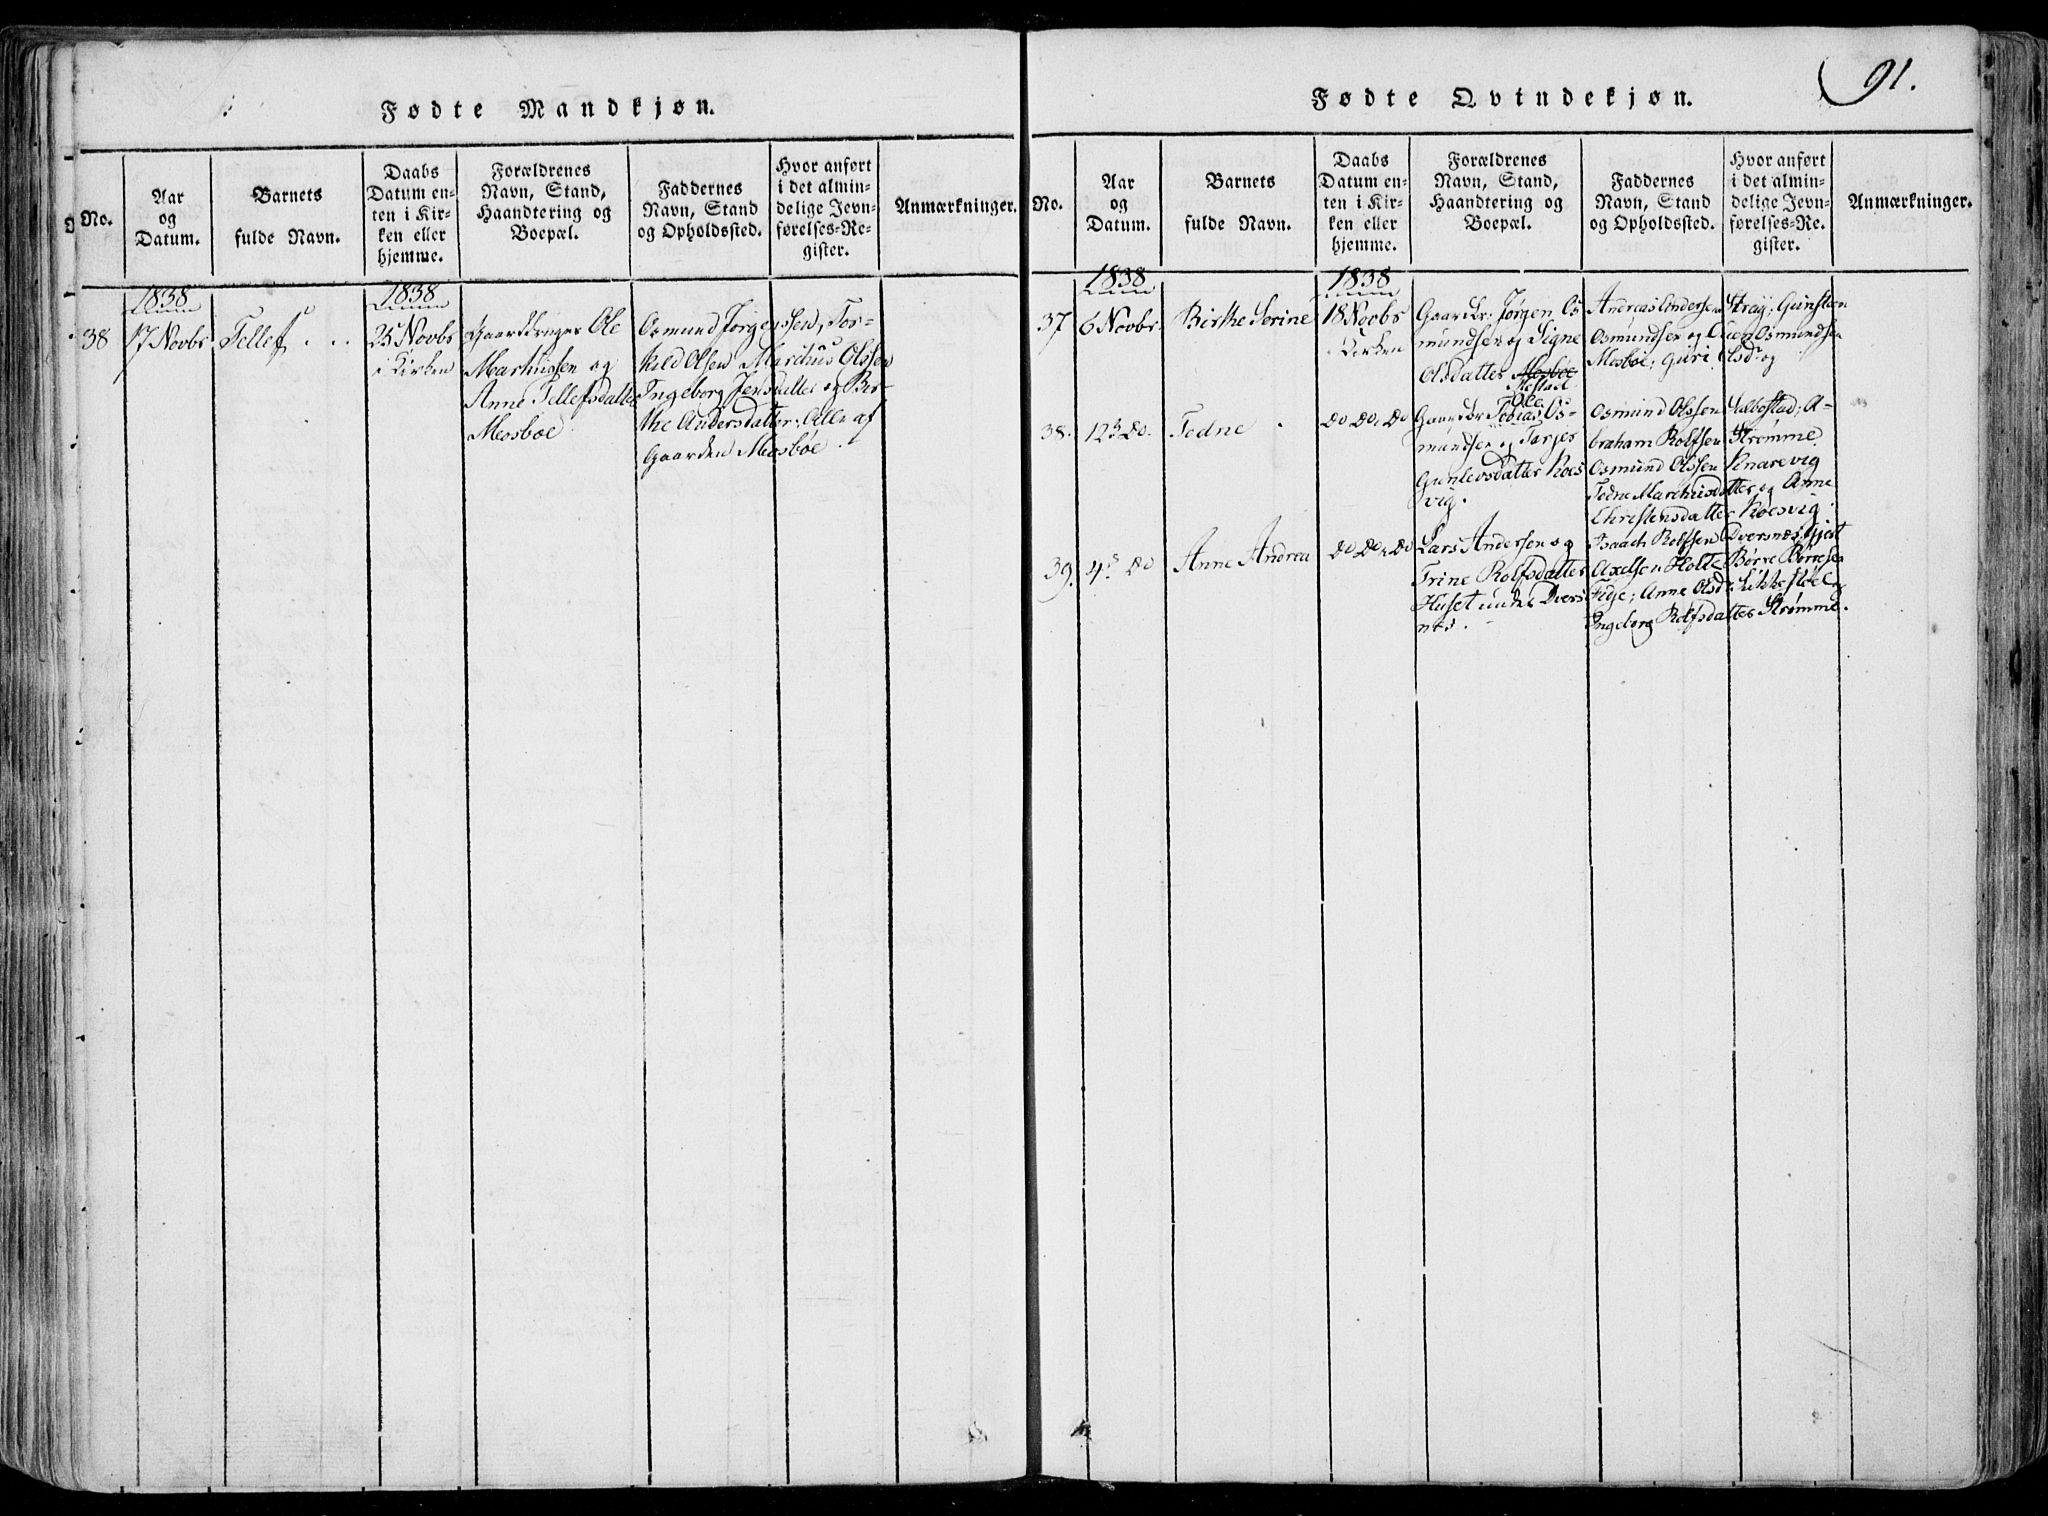 91.
Fødte Mandkjøn.
No.
Aar
og
Datum.
Barnets
fulde Navn.
Daabs
Datum en-
ten i Kir-
ken eller
hjemme.
Forældrenes
Navn, Stand,
Haandtering og
Boepæl.
Faddernes
Navn, Stand
og Opholdssted.
Hvor anført
i det almin-
delige Jevn-
førelses-Re-
gister.
Anmærkninger.
1838
1838
38
17 Novbr
Tellef
25 Novbr
i Kirken
Gaardbruger Ole
Marthissen og
Anne Tellefsdatter
Mosboe
Osmund Jørgenssen, Tor-
kild Olsen Marthus Olssen
Ingeborg Jensdatter og Bir-
the Andersdatter; Alle af
Gaarden Mosboe.
Fødte Qvindekjøn.
No.
Aar
og
Datum.
Barnets
fulde Navn.
Daabs
Datum en-
ten i Kir-
ken eller
hjemme.
Forældrenes
Navn, Stand,
Haandtering og
Boepæl.
Faddernes
Navn, Stand
og Opholdssted.
Hvor anført
i det almin-
delige Jevn-
førelses-Re-
gister.
Anmærkninger.
1838
1838
37
6 Novbr
Birthe Serine
18 Novbr
i Kirken
Gaardbr: Jørgen Os
mundsen og Signe
Olsdatter Mosboe
Andreas Andersen Straÿ; Gunsteen
Osmundsen og Osmundsen
Mosboe; Guri Olsdr og
38.
12 do.
Tedne
do do, do
Ole
Gaardbr Tobias Os-
mundsen og Tarjer
Gunlevsdatter Roes
vig.
Osmund Olssen Aalbostad; A-
braham Rolfsen Strømme
Osmund Olssen
Tedne Marthisdatter og Anne
Christensdatter Roesvig.
39.
4 do
Anne Andrea
do do, do
Lars Andersen og
Trine Rolfsdatter
Huset under Dvers
nes.
Isaach Rolfsen Dversnes; Gjert
Axelsen Holte Børre Børresen
Fidje; Anne Olsdr
Ingeborg Rolfsdatter Strømme.